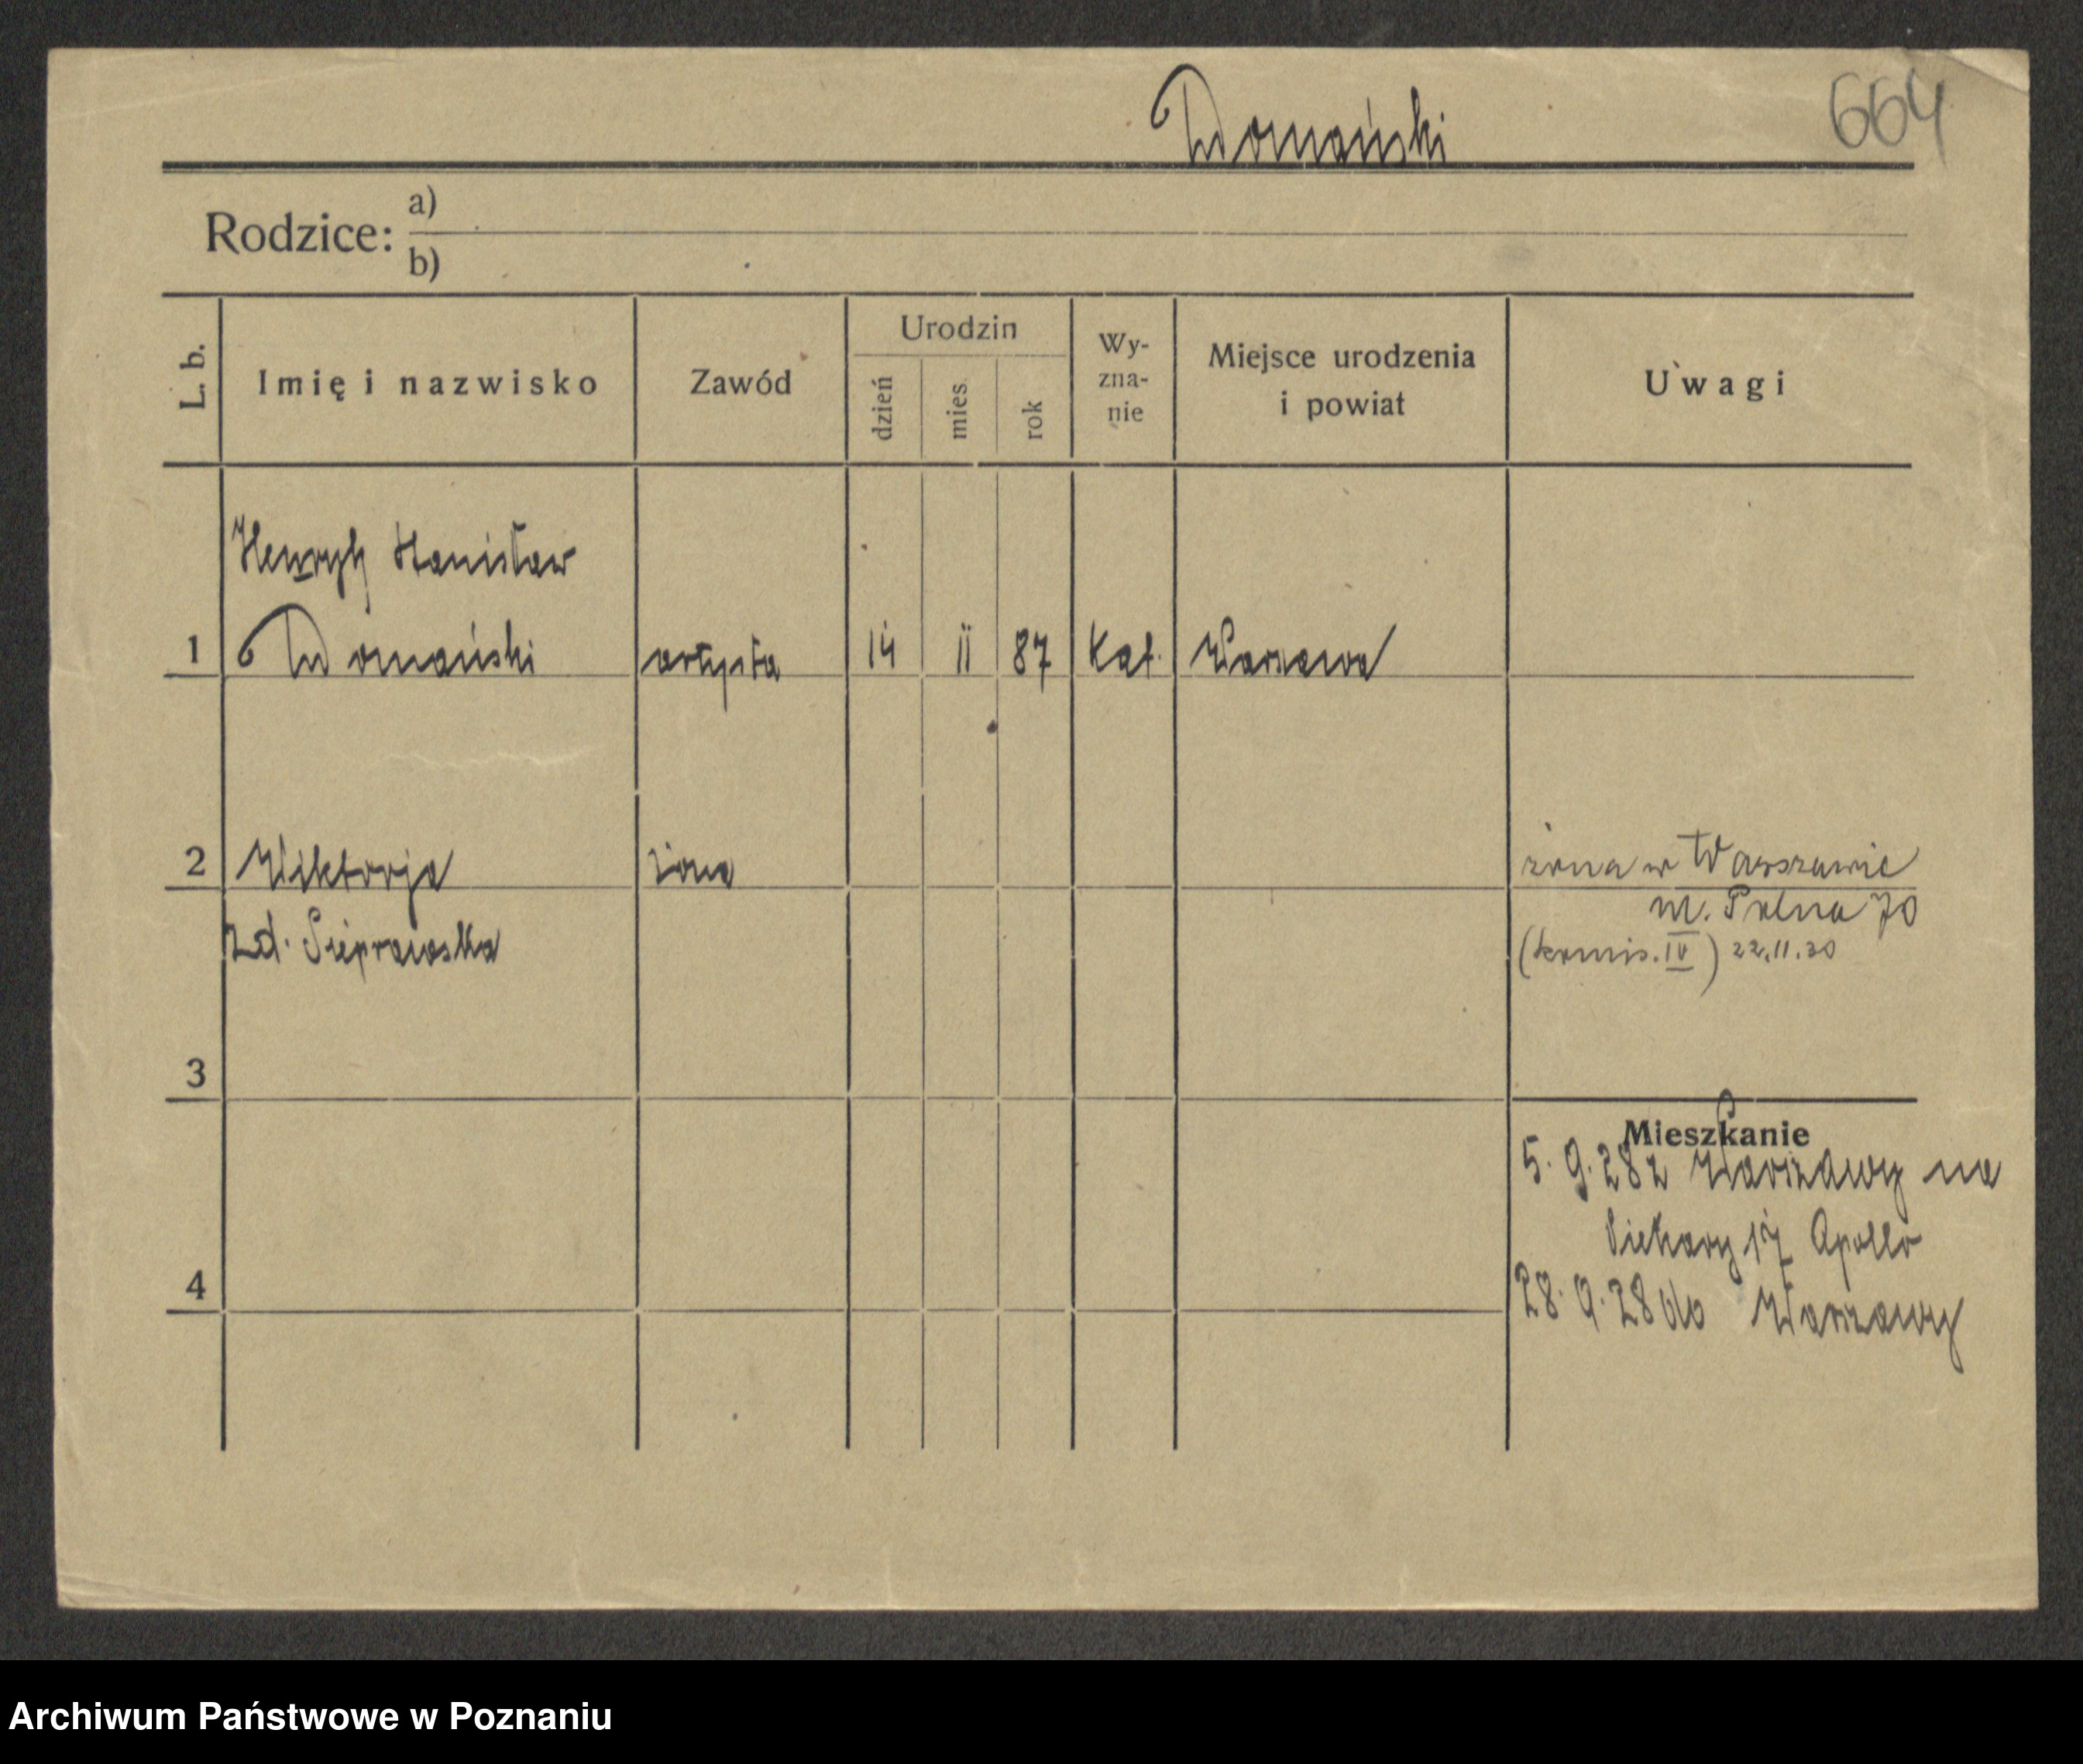 Domański 664
Rodzice: a)
b)
L. b.
Imię i nazwisko
Zawód
Urodzin
dzień
mies.
rok
Wy-
zna-
nie
Miejsce urodzenia
i powiat
Uwagi
Henryk Stanisław
1 Domański artysta 14 II 87 kat. Warszawa
2 Wiktorja żona żona w Warszawie
m. Polna 70
zd. Sieprawska (komis. IV) 22.11.30
3
Mieszkanie
5. 9. 28 z Warszawy na
Piekary 17 Apollo
4 28. 9. 28 do Warszawy
Archiwum Państwowe w Poznaniu